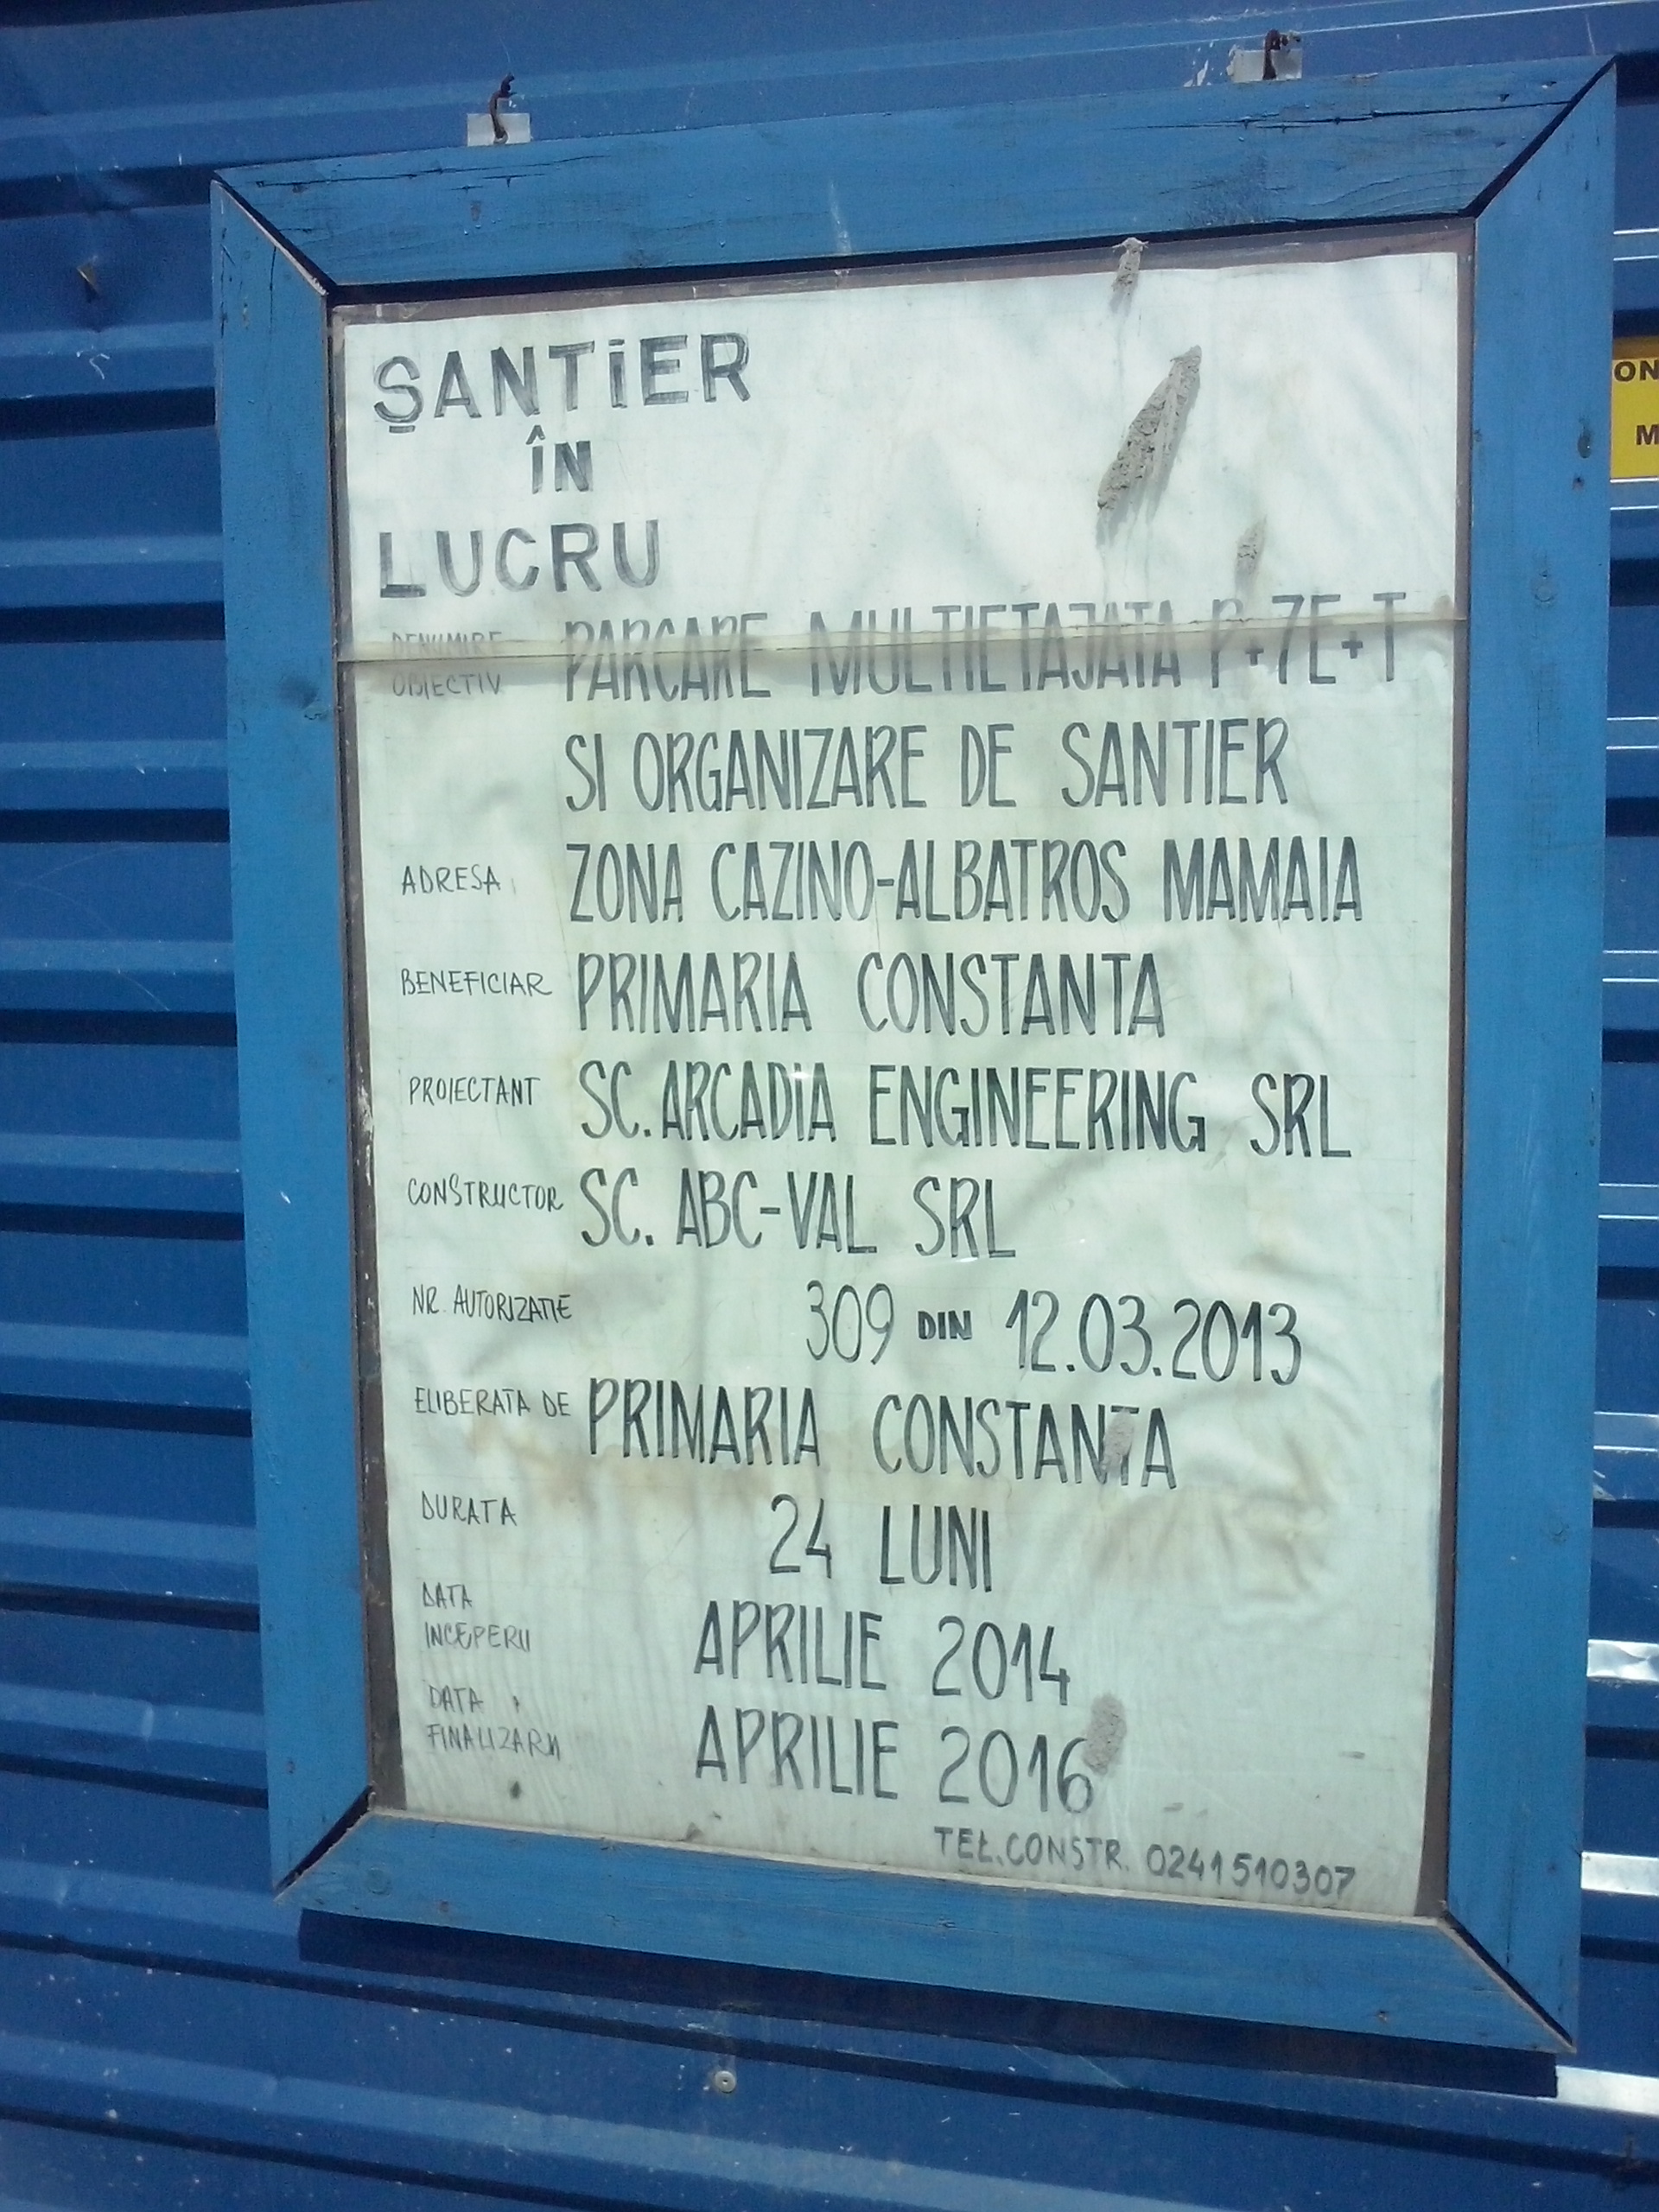 ŞANTiER
ÎN
LUCRU
DENUMIRE
OBIECTIV PARCARE MULTIETAJATA P+7E+T
SI ORGANIZARE DE SANTIER
ADRESA ZONA CAZINO-ALBATROS MAMAIA
BENEFICIAR PRIMARIA CONSTANTA
PROIECTANT SC. ARCADIA ENGINEERING SRL
CONSTRUCTOR SC. ABC-VAL SRL
NR. AUTORIZATIE 309 DIN 12.03.2013
ELIBERATA DE PRIMARIA CONSTANTA
DURATA 24 LUNI
DATA
INCEPERII APRILIE 2014
DATA
FINALIZARII APRILIE 2016
TEL.CONSTR. 0241510307